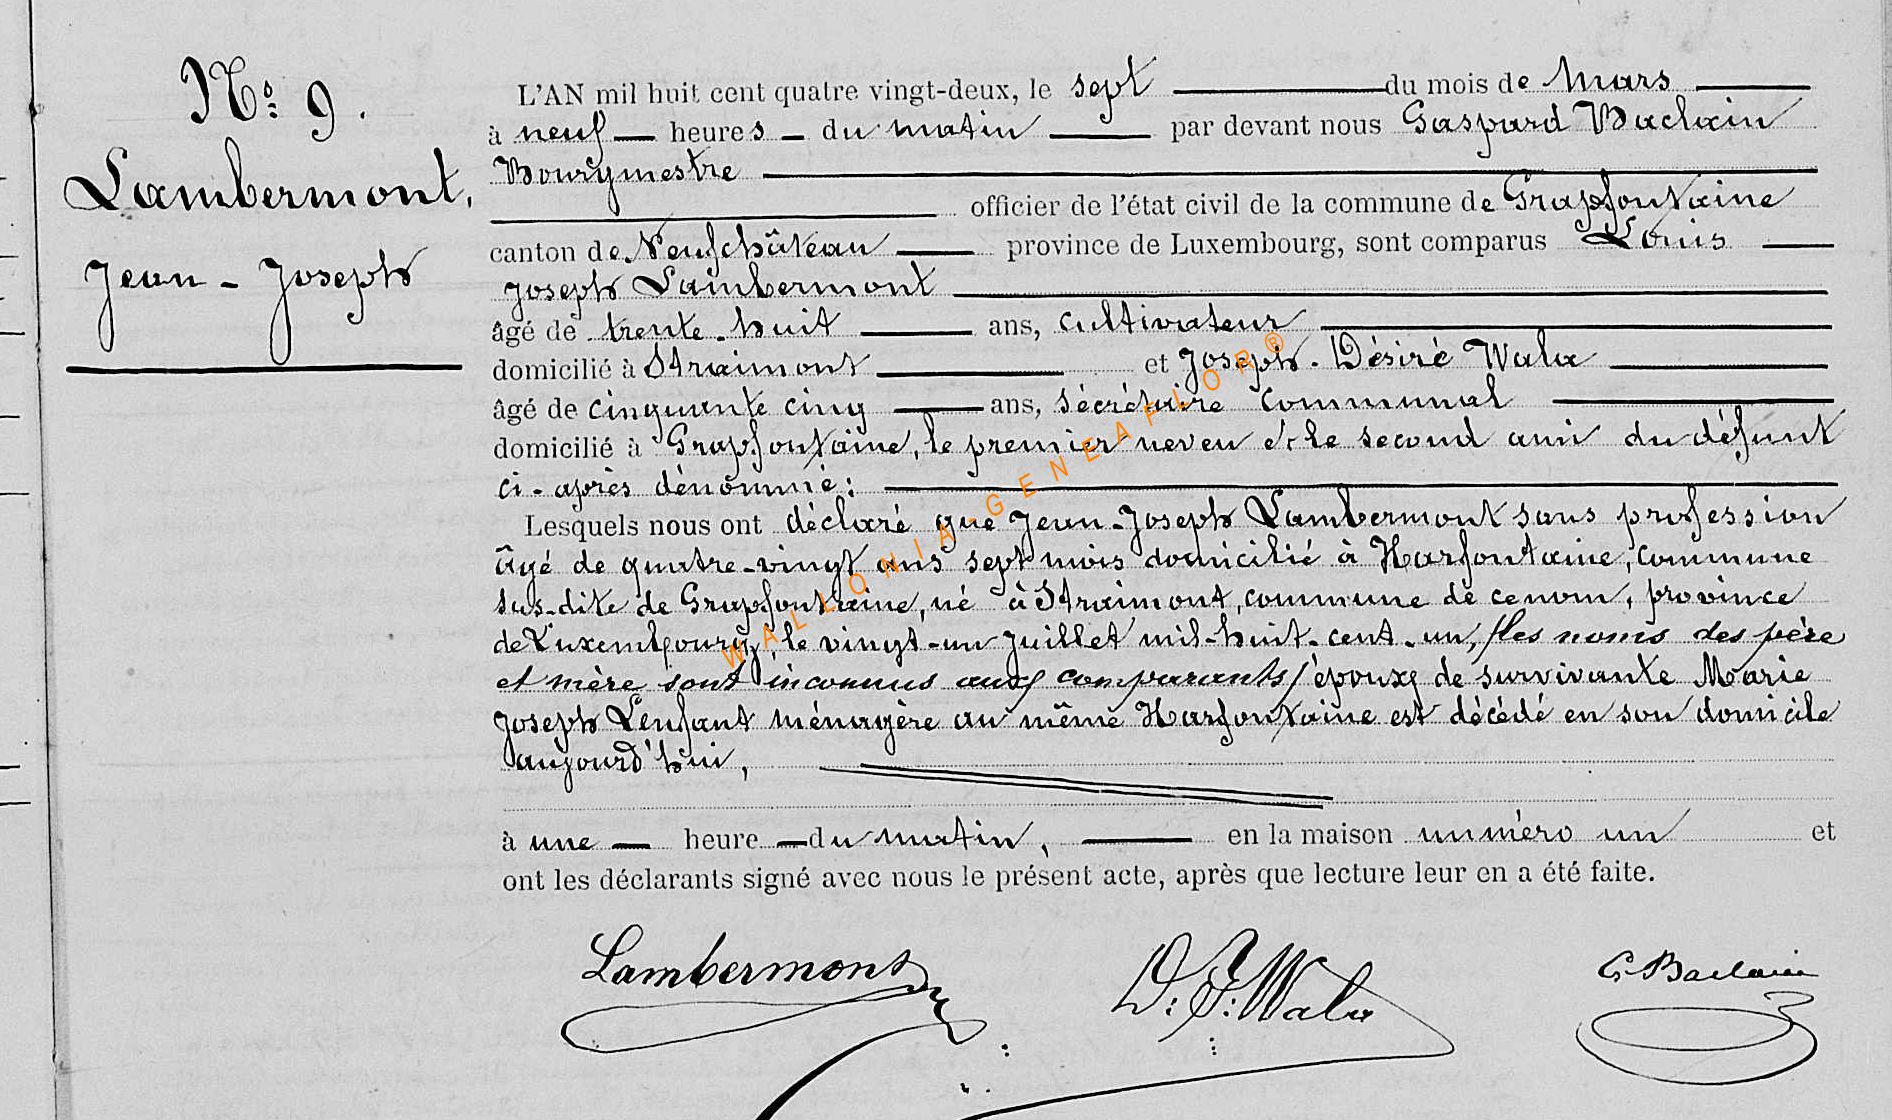 Nº 9.
Lambermont,
Jean - Joseph
L'AN mil huit cent quatre vingt-deux, le sept du mois de Mars
à neuf heures du matin par devant nous Gaspard Baclain
Bourgmestre
officier de l'état civil de la commune de Grapfontaine
canton de Neufchâteau province de Luxembourg, sont comparus Louis
Joseph Lambermont
âgé de trente-huit ans, cultivateur
domicilié à Straimont et Joseph-Désiré Wala
âgé de cinquante cinq ans, sécrétaire communal
domicilié à Grapfontaine, le premier neveu et le second ami du défunt
ci-après dénommé :
Lesquels nous ont déclaré que Jean-Joseph Lambermont sans profession
âgé de quatre-vingt ans sept mois domicilié à Harfontaine, commune
sus-dite de Grapfontaine, né à Straimont, commune de ce nom, province
de Luxembourg, le vingt-un Juillet mil-huit-cent-un, /les noms des père
et mère sont inconnus aux comparants/ époux de survivante Marie
Joseph Lenfant ménagère au même Harfontaine est décédé en son domicile
aujourd'hui,
à une heure du matin, en la maison numéro un et
ont les déclarants signé avec nous le présent acte, après que lecture leur en a été faite.
Lambermont D. J. Wala G. Baclain
WALLONIA-GENEAFLOR®